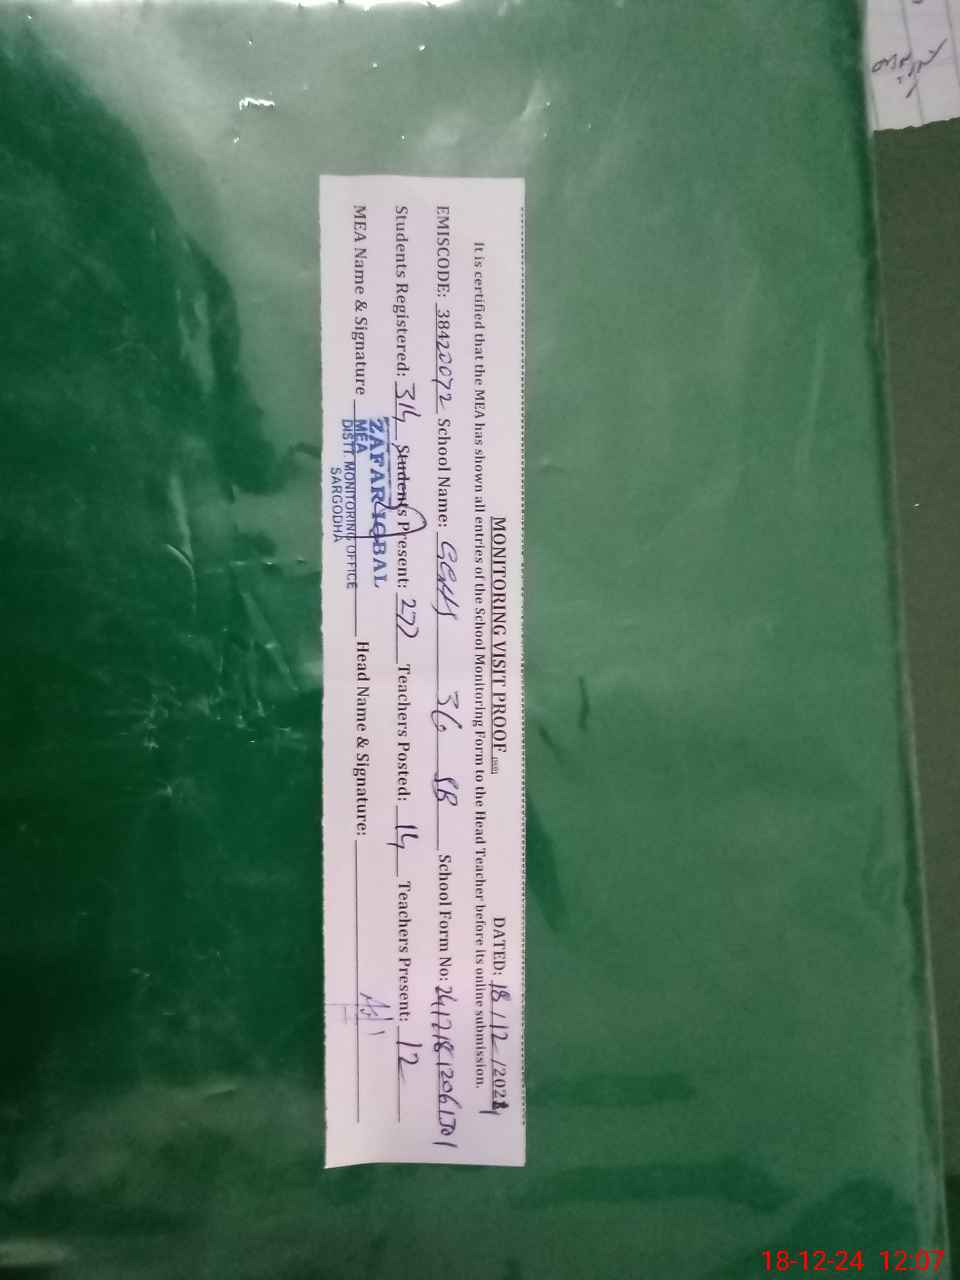 MONITORING VISIT PROOF DATED: 18/12/2024
It is certified that the MEA has shown all entries of the School Monitoring Form to the Head Teacher before its online submission.
EMISCODE: 38420072 School Name: GGHS 36 SB School Form No:
Students Registered: 314 Students Present: 272 Teachers Posted: 14 Teachers Present: 12
MEA Name & Signature Head Name & Signature:
ZAFAR IQBAL
MEA
DISTT. MONITORING OFFICE
SARGODHA
18-12-24 12:07